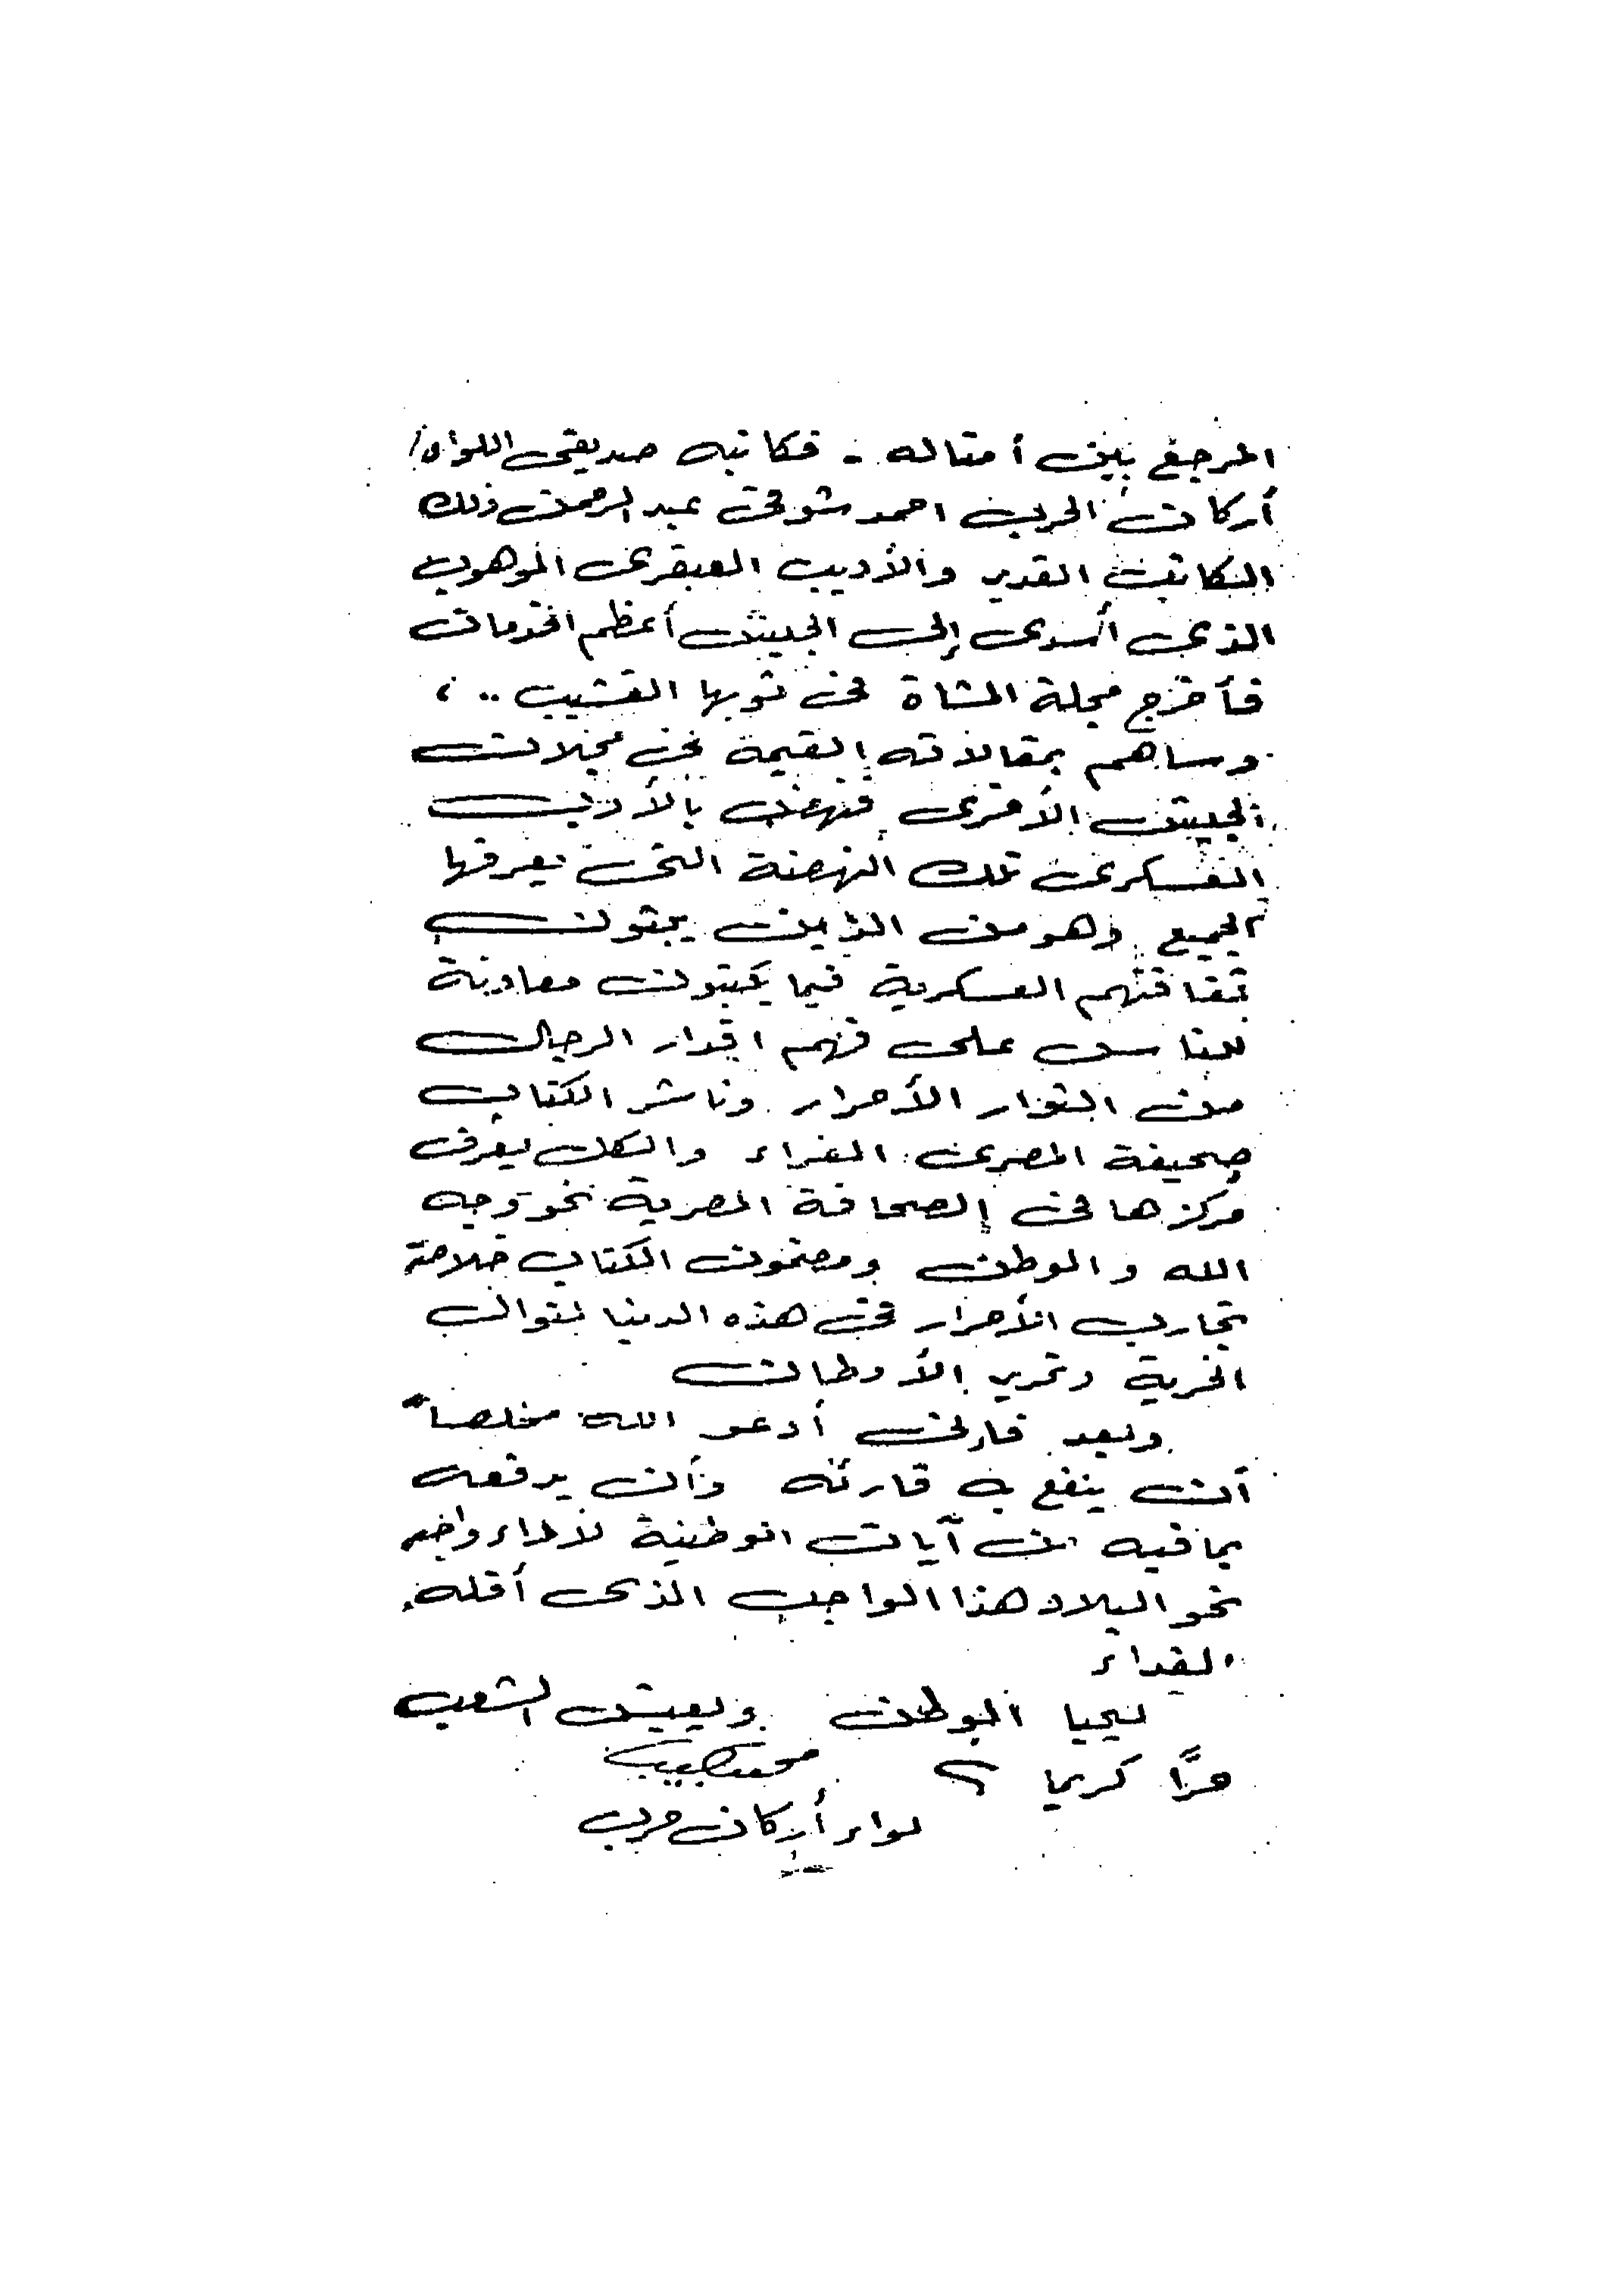 المرجع بين أمثاله . فكاتبه صديقى اللواء/
أركان الحرب احمد شوقى عبد الرحمن ذلك
الكاتب القدير والأديب العبقرى الموهوب
الذى أسدى إلى الجيش أعظم الخدمات
فأخرج مجلة المشاة فى ثوبها القشيب .. ،
وساهم بمقالاته القيمة فى مجلات
الجيش الأخرى فنهض بالأدب
العسكرى تلك النهضة التى يعرفها
الجميع وهو من الذين يبثون
ثقافتهم العسكرية فيما يكتبون معاونة
للناس على فهم اقدار الرجال
من الثوار الأحرار وناشر الكتاب
صحيفة المصرى الغراء والكل يعرف
مركزها فى الصحافة المصرية نحو وجه
الله والوطن ومضمون الكتاب خلاصة
تجارب الأحرار فى هذه الدنيا
الحرية وتحرير الأوطان
وبعد فإنى أدعو الله مخلصاً
أن ينفع به قارئه وأن يدفعه
بما فيه من آيات الوطنية لأداء واجبه
نحو البلاد هذا الواجب الذى أقله
الفداء
ليحيا الوطن وليعيش الشعب
حرًّا كريما
محمد نجيب
لواء أركان حرب